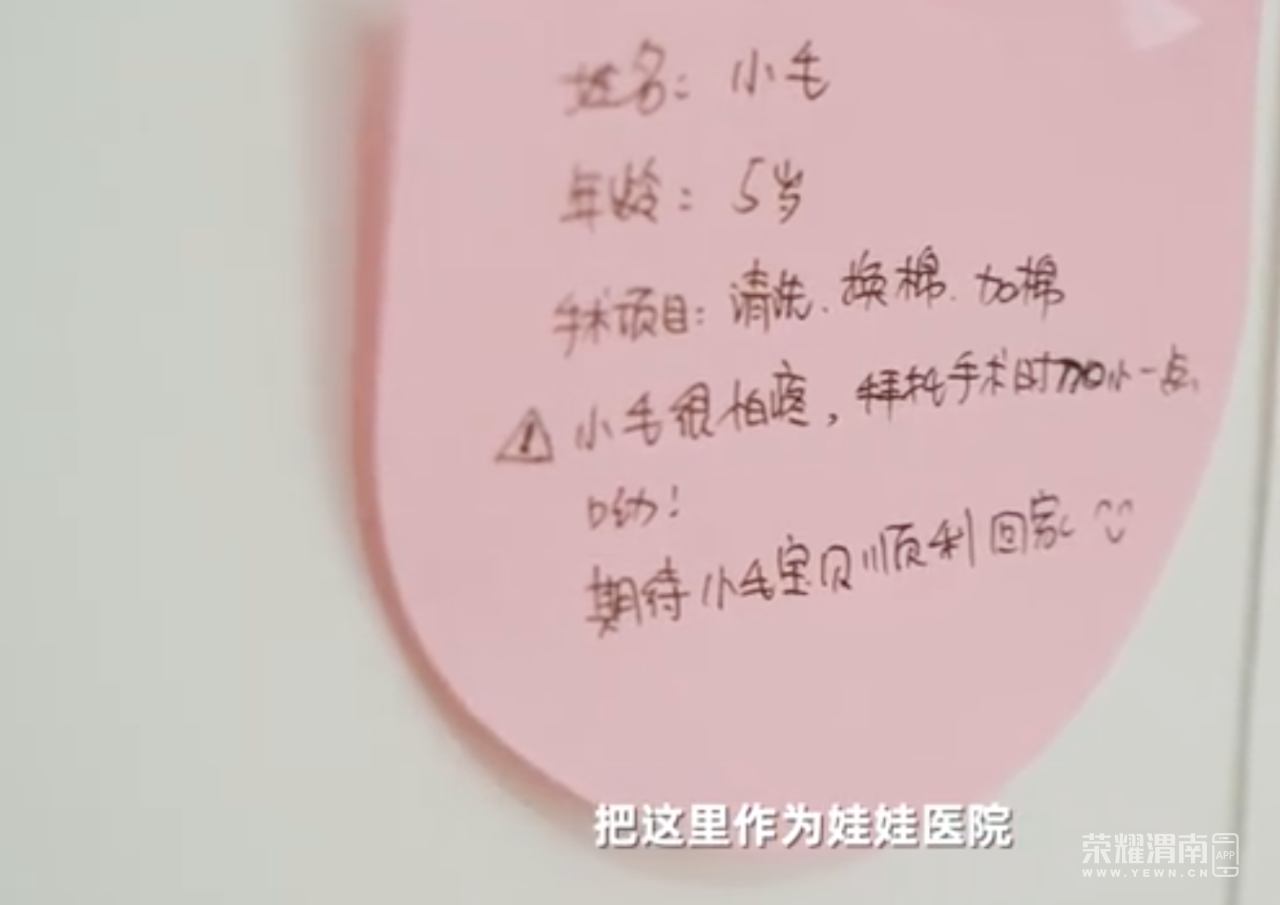 姓名：小毛
年龄：5岁
手术项目：清洗、换棉、加棉
⚠小毛很怕疼，拜托手术时加小一点
呦！
期待小毛宝贝顺利回家
把这里作为娃娃医院
荣耀渭南APP
WWW.YEWN.CN